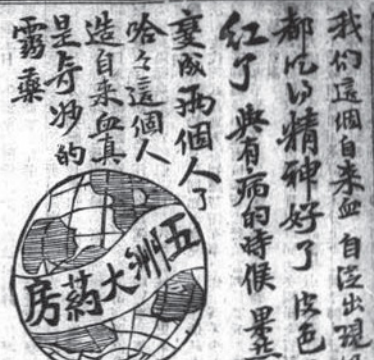 我们這個自来血 自從出現
都吃得精神好了 皮色
红了 與有病的時候 果
變成兩個人了
哈々這個人
造自来血真
是奇妙的
靈藥
五洲大葯房